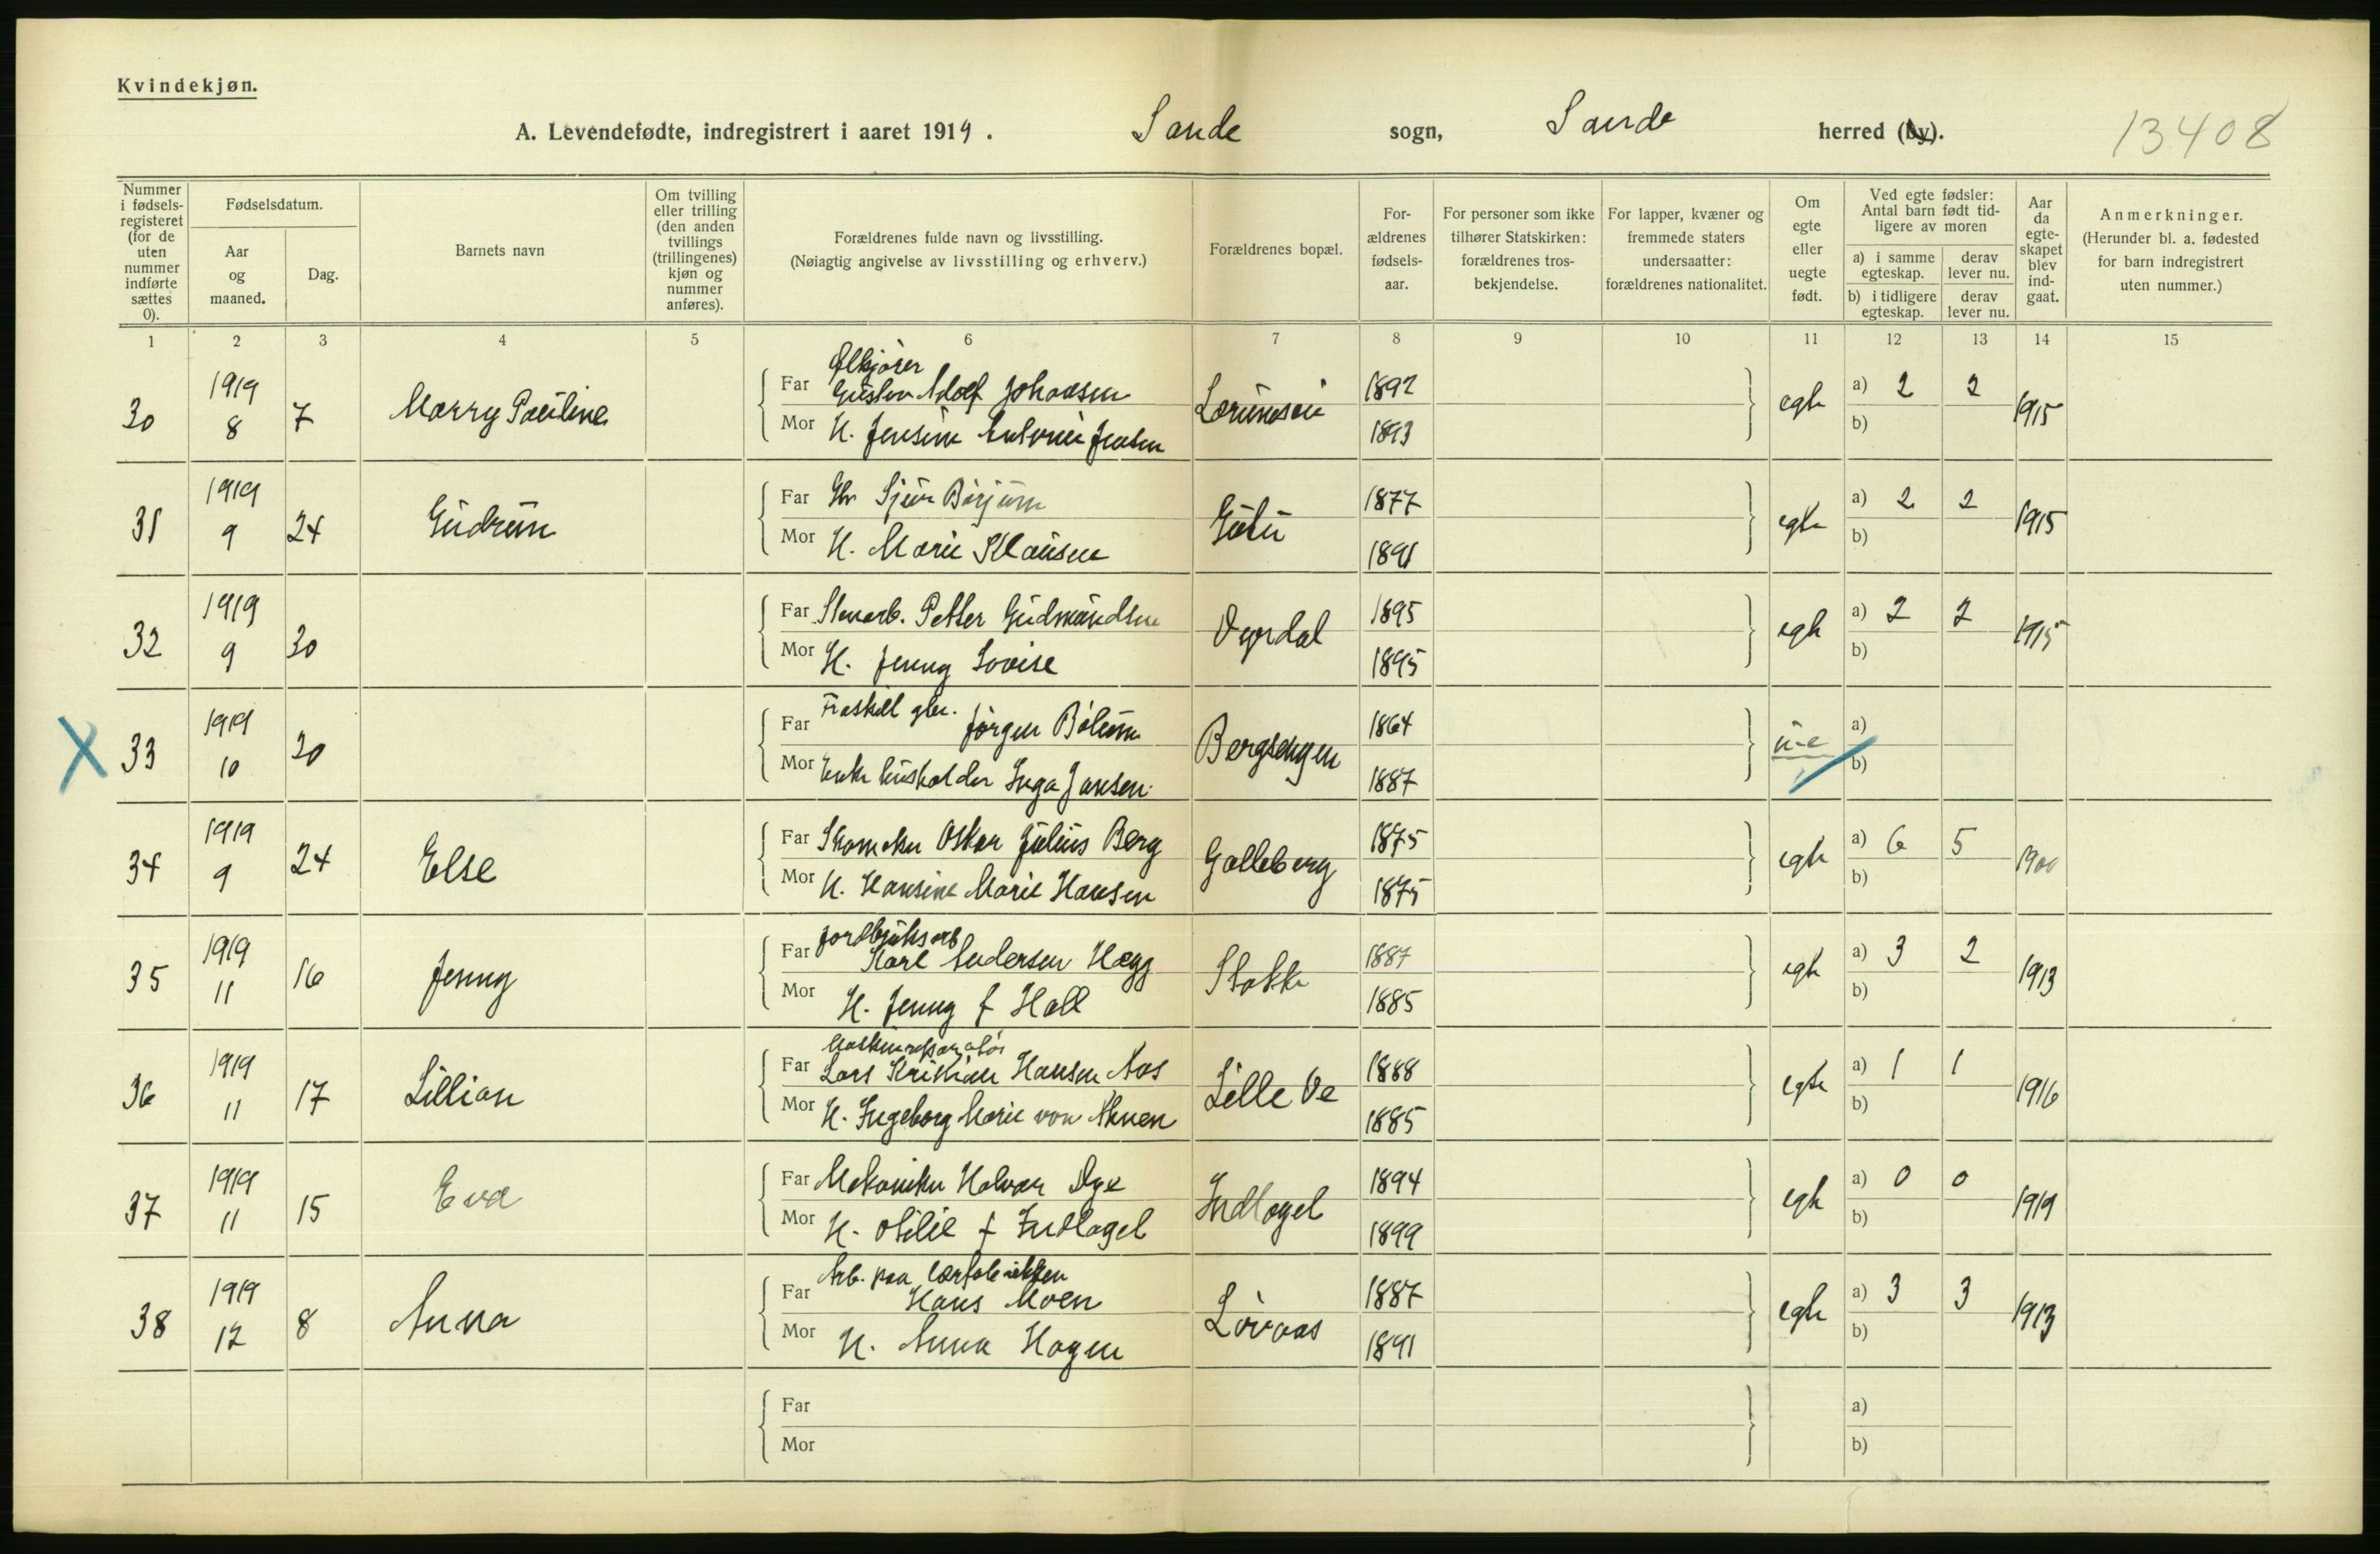 Kvindekjøn.
A. Levendefødte, indregistrert i aaret 1919. Sande sogn, Sande herred (by). 13408
Nummer i fødselsregisteret (for de uten nummer indførte sættes 0).
Fødselsdatum.
Aar og maaned.
Dag.
Barnets navn
Om tvilling eller trilling (den anden tvillings (trillingenes) kjøn og nummer anføres).
Forældrenes fulde navn og livsstilling.
(Nøiagtig angivelse av livsstilling og erhverv.)
Forældrenes bopæl.
Forældrenes fødselsaar.
For personer som ikke tilhører Statskirken: forældrenes trosbekjendelse.
For lapper, kvæner og fremmede staters undersaatter: forældrenes nationalitet.
Om egte eller uegte født.
Ved egte fødsler: Antal barn født tidligere av moren
a) i samme egteskap.
derav lever nu.
b) i tidligere egteskap.
derav lever nu.
Aar da egteskapet blev indgaat.
Anmerkninger.
(Herunder bl. a. fødested for barn indregistrert uten nummer.)
1 2 3 4 5 6 7 8 9 10 11 12 13 14 15
Ølkjører
30 1919 8 7 Marry Pauline Far Gustav Adolf Johansen 1892 egte a) 2 2 1915
Mor H. Jensine Antonie Jensen 1893 b)
31 1919 9 24 Gudrun Far Sjur Borjum 1877 egte a) 2 2 1915
Mor H. Marie Klausen 1891 b)
32 1919 9 30 Far Stenarb. Petter Gudmundsen Dyrdal 1895 egte a) 2 2 1915
Mor H. Jenny Lovise 1895 b)
Fraskilt gbr.
X 33 1919 10 20 Far Jørgen Bølum Bergsengen 1864 u-e a)
Mor Enke husholder Inga Jansen. 1887 b)
34 1919 9 24 Else Far Skomaker Oskar Julius Berg Galleberg 1875 egte a) 6 5 1900
Mor H. Hansine Marie Hansen 1875 b)
Jordbruksarb
35 1919 11 16 Jenny Far Karl Andersen Hægg 1887 egte a) 3 2 1913
Mor H. Jenny f Hall 1885 b)
Maskinreparatør
36 1919 11 17 Lillian Far Lars Kristian Hansen Aas Lille Ve 1888 egte a) 1 1 1916
Mor H. Ingeborg Marie von 1885 b)
37 1919 11 15 Eva Far Mekaniker Halvar Dye Indlagel 1894 egte a) 0 0 1919
Mor H. Otilie f Indlagel 1899 b)
Arb. paa lærfabrikken
38 1919 12 8 Anna Far Hans Moen Løvaas 1887 egte a) 3 3 1913
Mor H. Anna Hagen 1891 b)
Far a)
Mor b)